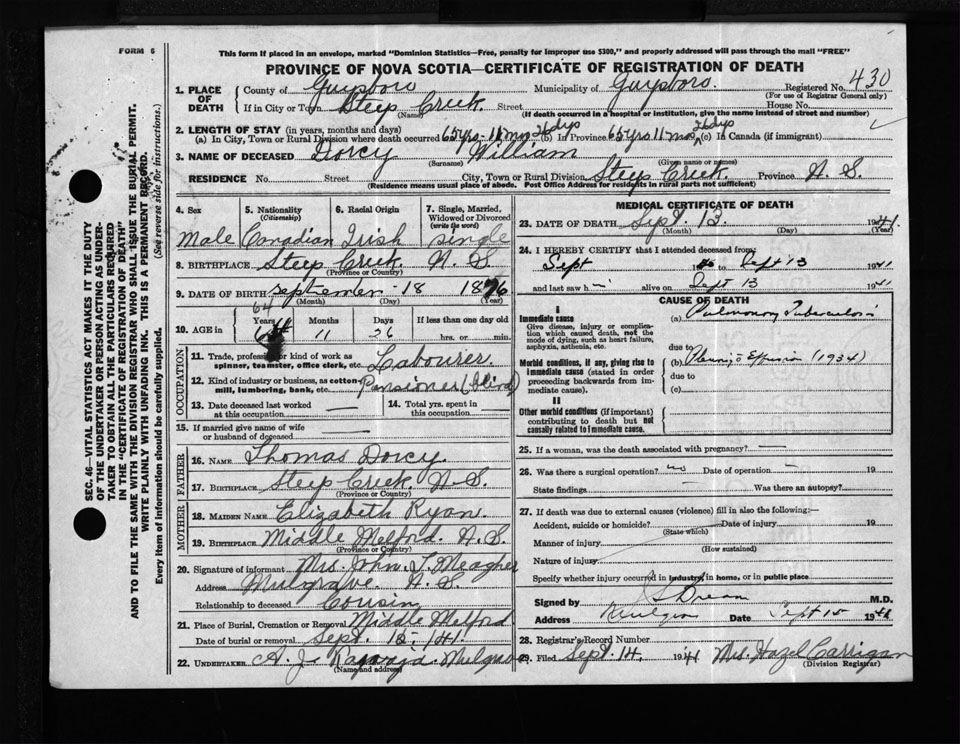 FORM 6
This form if placed in an envelope, marked "Dominion Statistics—Free, penalty for improper use $300," and properly addressed will pass through the mail "FREE"
PROVINCE OF NOVA SCOTIA—CERTIFICATE OF REGISTRATION OF DEATH
1. PLACE OF DEATH County of Guysboro Municipality of Guysboro. Registered No. 430
(For use of Registrar General only)
If in City or Town Steep Creek. Street House No.
(Name) (If death occurred in a hospital or institution, give the name instead of street and number)
2. LENGTH OF STAY (in years, months and days)
(a) In City, Town or Rural Division where death occurred 65 yrs - 11 mn 26 dys (b) In Province 65 yrs 11 mos 26 dys (c) In Canada (if immigrant)
3. NAME OF DECEASED Dorcy William
(Surname) (Given name or names)
RESIDENCE No. Street City, Town or Rural Division Steep Creek. Province N. S.
(Residence means usual place of abode. Post Office Address for residents in rural parts not sufficient)
4. Sex 5. Nationality (Citizenship) 6. Racial Origin 7. Single, Married, Widowed or Divorced (write the word)
Male Canadian Irish single
8. BIRTHPLACE Steep Creek. N. S.
(Province or Country)
9. DATE OF BIRTH September - 18 1876
(Month) (Day) (Year)
10. AGE in Years Months Days If less than one day old
64 11 26 hrs. or min.
OCCUPATION
11. Trade, profession or kind of work as spinner, teamster, office clerk, etc. Labourer
12. Kind of industry or business, as cotton mill, lumbering, bank, etc. Pansioner (blind)
13. Date deceased last worked at this occupation 14. Total yrs. spent in this occupation
15. If married give name of wife or husband of deceased
FATHER
16. NAME Thomas Dorcy.
17. BIRTHPLACE Steep Creek. N. S.
(Province or Country)
MOTHER
18. MAIDEN NAME Elizabeth Ryan.
19. BIRTHPLACE Middle Melford. N. S.
(Province or Country)
20. Signature of informant Mrs. John J. Meagher
Address Mulgrave. N. S.
Relationship to deceased Cousin
21. Place of Burial, Cremation or Removal Middle Melford
Date of burial or removal Sept. 15. 1941.
22. UNDERTAKER A. J. Mulgrave
(Name and address)
MEDICAL CERTIFICATE OF DEATH
23. DATE OF DEATH Sept. 13. 1941.
(Month) (Day) (Year)
24. I HEREBY CERTIFY that I attended deceased from:
Sept to Sept 13 1941
and last saw h alive on Sept 13 1941
CAUSE OF DEATH
I
Immediate cause (a) Pulmonary Tuberculosis
Give disease, injury or complication which caused death, not the mode of dying, such as heart failure, asphyxia, asthenia, etc.
due to
Morbid conditions, if any, giving rise to immediate cause (stated in order proceeding backwards from immediate cause). (b) Effusion (1934)
due to
(c)
II
Other morbid conditions (if important) contributing to death but not causally related to immediate cause.
25. If a woman, was the death associated with pregnancy?
26. Was there a surgical operation? no Date of operation 19
State findings Was there an autopsy?
27. If death was due to external causes (violence) fill in also the following:—
Accident, suicide or homicide? Date of injury 19
(State which)
Manner of injury
(How sustained)
Nature of injury
Specify whether injury occurred in industry, in home, or in public place
Signed by M.D.
Address Date Sept 15 1941
28. Registrar's Record Number
29. Filed Sept. 14. 1941 Mrs. Hazel Carrigan
(Division Registrar)
SEC. 46—VITAL STATISTICS ACT MAKES IT THE DUTY
OF THE UNDERTAKER OR PERSON ACTING AS UNDER-
TAKER TO OBTAIN ALL THE PARTICULARS REQUIRED
IN THE "CERTIFICATE OF REGISTRATION OF DEATH"
AND TO FILE THE SAME WITH THE DIVISION REGISTRAR WHO SHALL ISSUE THE BURIAL PERMIT.
WRITE PLAINLY WITH UNFADING INK. THIS IS A PERMANENT RECORD.
Every item of information should be carefully supplied. (See reverse side for instructions.)